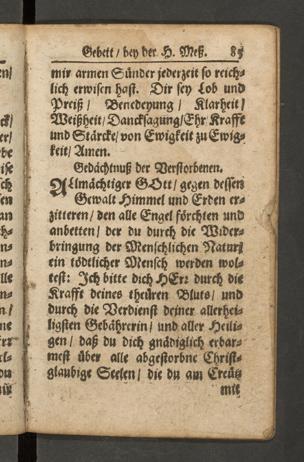 Gebett / bey der H. Meß. 85
mir armen Sünder jederzeit so reich-
lich erwisen hast. Dir sey Lob und
Preiß / Benedeyung / Klarheit /
Weißheit / Dancksagung / Ehr Kraffe
und Stärcke / von Ewigkeit zu Ewig-
keit / Amen.
Gedächtnuß der Verstorbenen.
Allmächtiger GOtt / gegen dessen
Gewalt Himmel und Erden er-
zitteren / den alle Engel förchten und
anbetten / der du durch die Wider-
bringung der Menschlichen Natur /
ein tödtlicher Mensch werden wol-
test: Ich bitte dich HErr durch die
Krafft deines theüren Bluts / und
durch die Verdienst deiner allerhei-
ligsten Gebährerin / und aller Heili-
gen / daß du dich gnädiglich erbar-
mest über alle abgestorbne Christ-
glaubige Seelen / die du am Creütz
mit